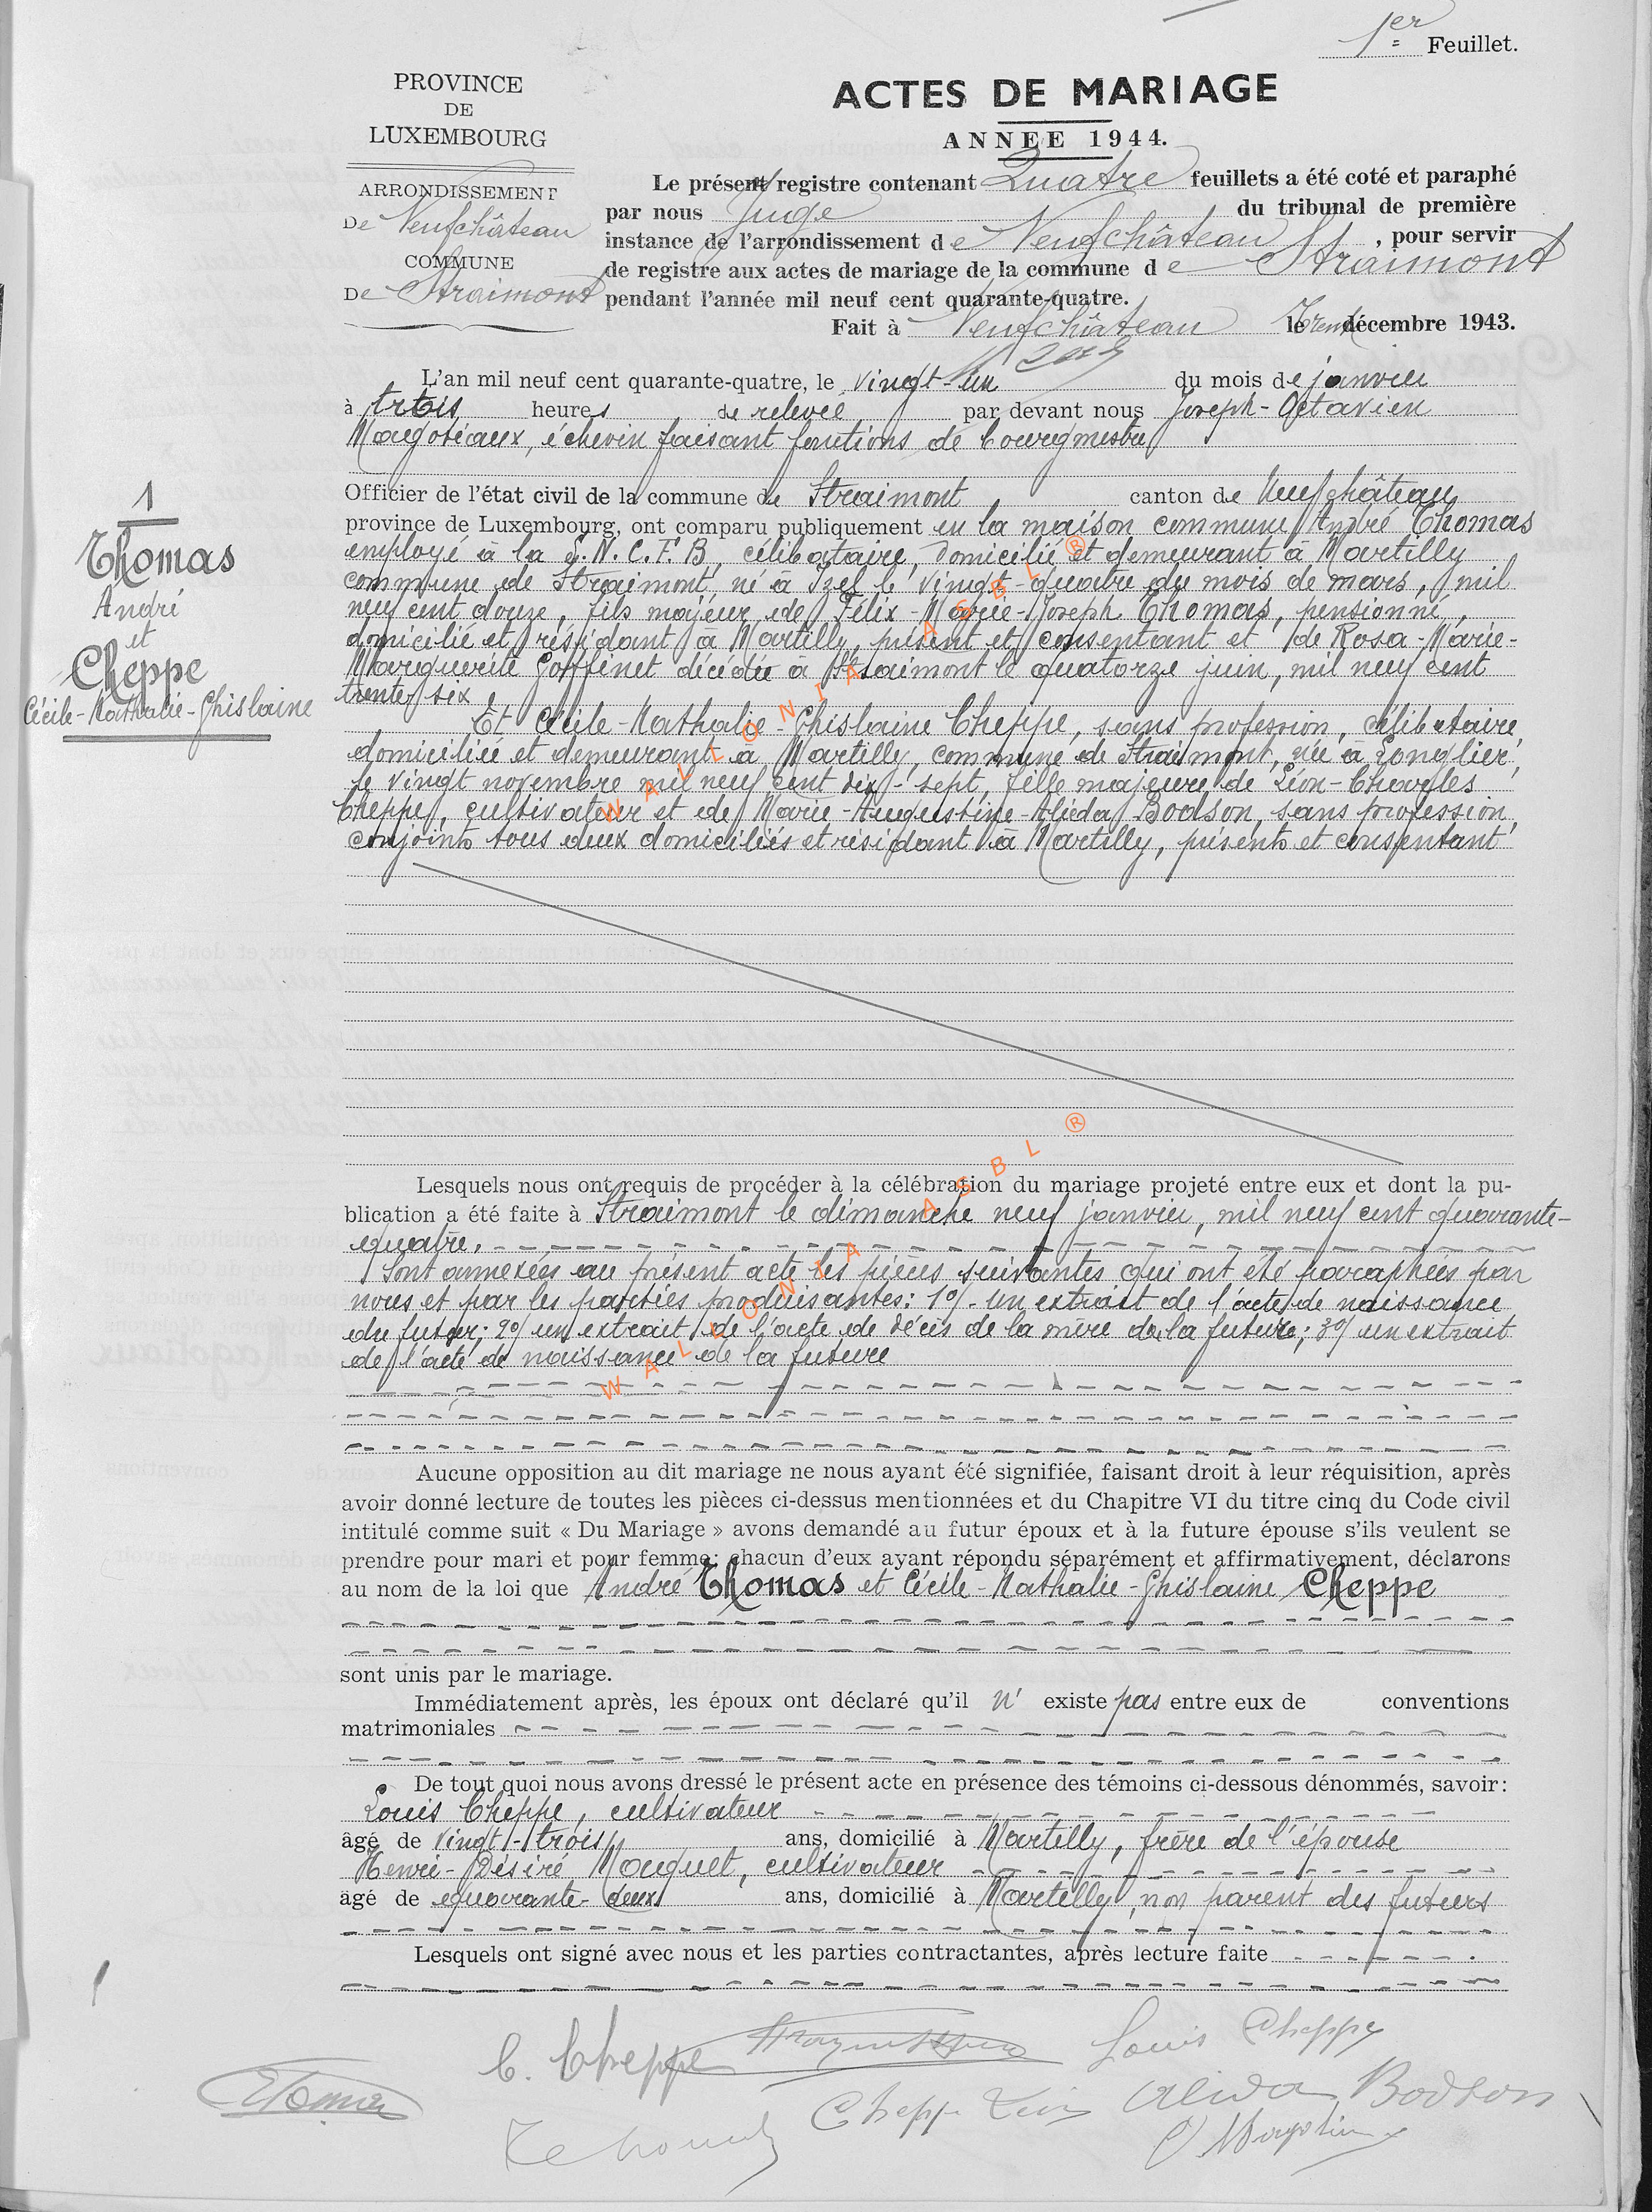 1er Feuillet.
PROVINCE
DE
LUXEMBOURG
ARRONDISSEMENT
De Neufchâteau
COMMUNE
De Straimont
ACTES DE MARIAGE
ANNEE 1944.
Le présent registre contenant Quatre feuillets a été coté et paraphé
par nous Juge du tribunal de première
instance de l'arrondissement de Neufchâteau, pour servir
de registre aux actes de mariage de la commune de Straimont
pendant l'année mil neuf cent quarante-quatre.
Fait à Neufchâteau le Trente décembre 1943.
1
Thomas
André
et
Cheppe
Cécile-Nathalie-Ghislaine
L'an mil neuf cent quarante-quatre, le vingt-un du mois de janvier
à trois heures de relevée par devant nous Joseph-Octavien
Magotéaux, échevin faisant fontions de bourgmestre
Officier de l'état civil de la commune de Straimont canton de Neufchâteau
province de Luxembourg, ont comparu publiquement en la maison commune André Thomas
employé à la S.N.C.F.B, célibataire, domicilié et demeurant à Martilly
commune de Straimont, né à Izel le vingt-quatre du mois de mars, mil
neuf cent douze, fils majeur de Félix-Marie-Joseph Thomas, pensionné,
domicilié et résidant à Martilly, présent et consentant et de Rosa-Marie-
Marguerite Goffinet décédée à Straimont le quatorze juin, mil neuf cent
trente-six
Et Cécile-Nathalie-Ghislaine Cheppe, sans profession, célibataire,
domiciliée et demeurant à Martilly, commune de Straimont, née à Longlier,
le vingt novembre mil neuf cent dix-sept, fille majeure de Léon-Charles
Cheppe, cultivateur et de Marie-Augustine-Aliéda Bodson, sans profession,
conjoints tous deux domiciliés et résidant à Martilly, présents et consentant
Lesquels nous ont requis de procéder à la célébration du mariage projeté entre eux et dont la pu-
blication a été faite à Straimont le dimanche neuf janvier, mil neuf cent quarante-
quatre.
Sont annexées au présent acte les pièces suivantes qui ont été paraphées par
nous et par les parties produisantes: 1°/- un extrait de l'acte de naissance
du futur; 2°/ un extrait de l'acte de décès de la mère de la future; 3°/ un extrait
de l'acte de naissance de la future
Aucune opposition au dit mariage ne nous ayant été signifiée, faisant droit à leur réquisition, après
avoir donné lecture de toutes les pièces ci-dessus mentionnées et du Chapitre VI du titre cinq du Code civil
intitulé comme suit « Du Mariage » avons demandé au futur époux et à la future épouse s'ils veulent se
prendre pour mari et pour femme; chacun d'eux ayant répondu séparément et affirmativement, déclarons
au nom de la loi que André Thomas et Cécile-Nathalie-Ghislaine Cheppe
sont unis par le mariage.
Immédiatement après, les époux ont déclaré qu'il n' existe pas entre eux de conventions
matrimoniales
De tout quoi nous avons dressé le présent acte en présence des témoins ci-dessous dénommés, savoir:
Louis Cheppe, cultivateur
âgé de vingt-trois ans, domicilié à Martilly, frère de l'épouse
Henri-Désiré Maquet, cultivateur
âgé de quarante-deux ans, domicilié à Martilly, non parent des futurs
Lesquels ont signé avec nous et les parties contractantes, après lecture faite
C. Cheppe Louis Cheppe
Cheppe Léon Alida Bodson
WALLONIA ASBL ®
WALLONIA ASBL ®